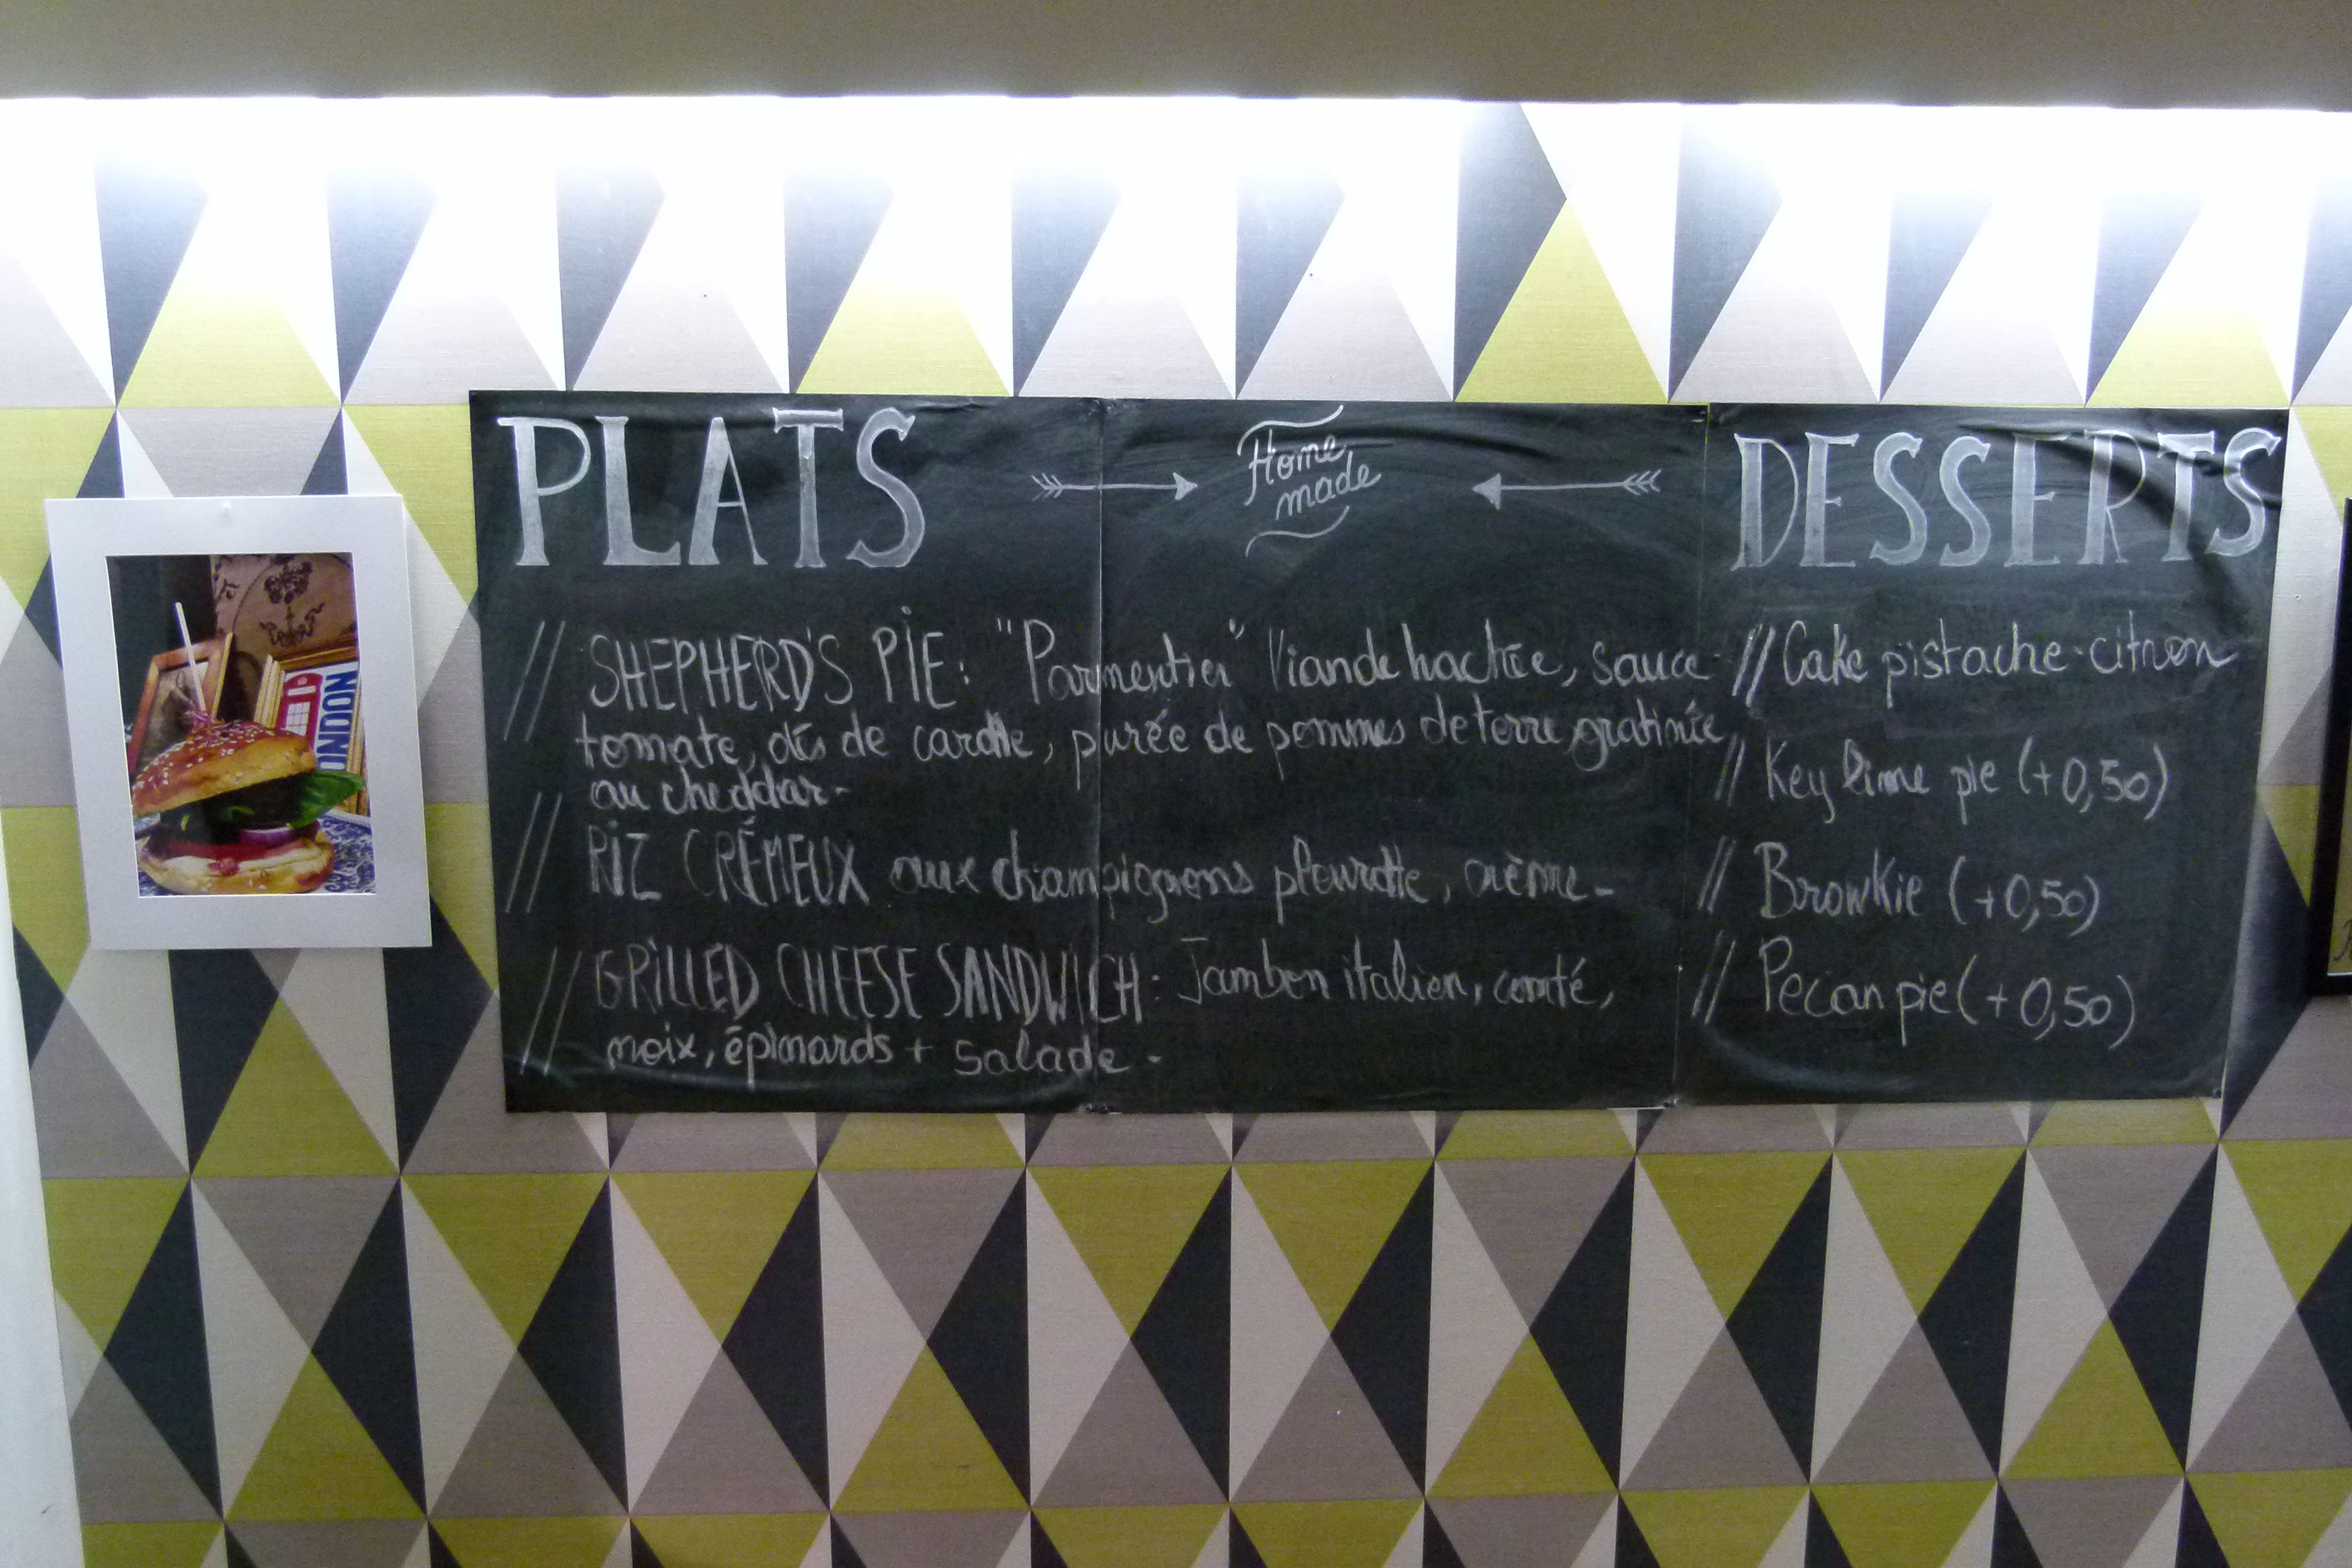 PLATS
Home
made
DESSERTS
// SHEPHERD'S PIE: "Parmentier" Viande hachée, sauce
tomate, dés de carotte, purée de pommes de terre, gratinée
au cheddar.
// RIZ CRÉMEUX aux champignons pleurotte, crème.
// GRILLED CHEESE SANDWICH: Jambon italien, comté,
noix, épinards + salade.
// Cake pistache-citron
// Key lime pie (+0,50)
// Browkie (+0,50)
// Pecan pie (+0,50)
LONDON